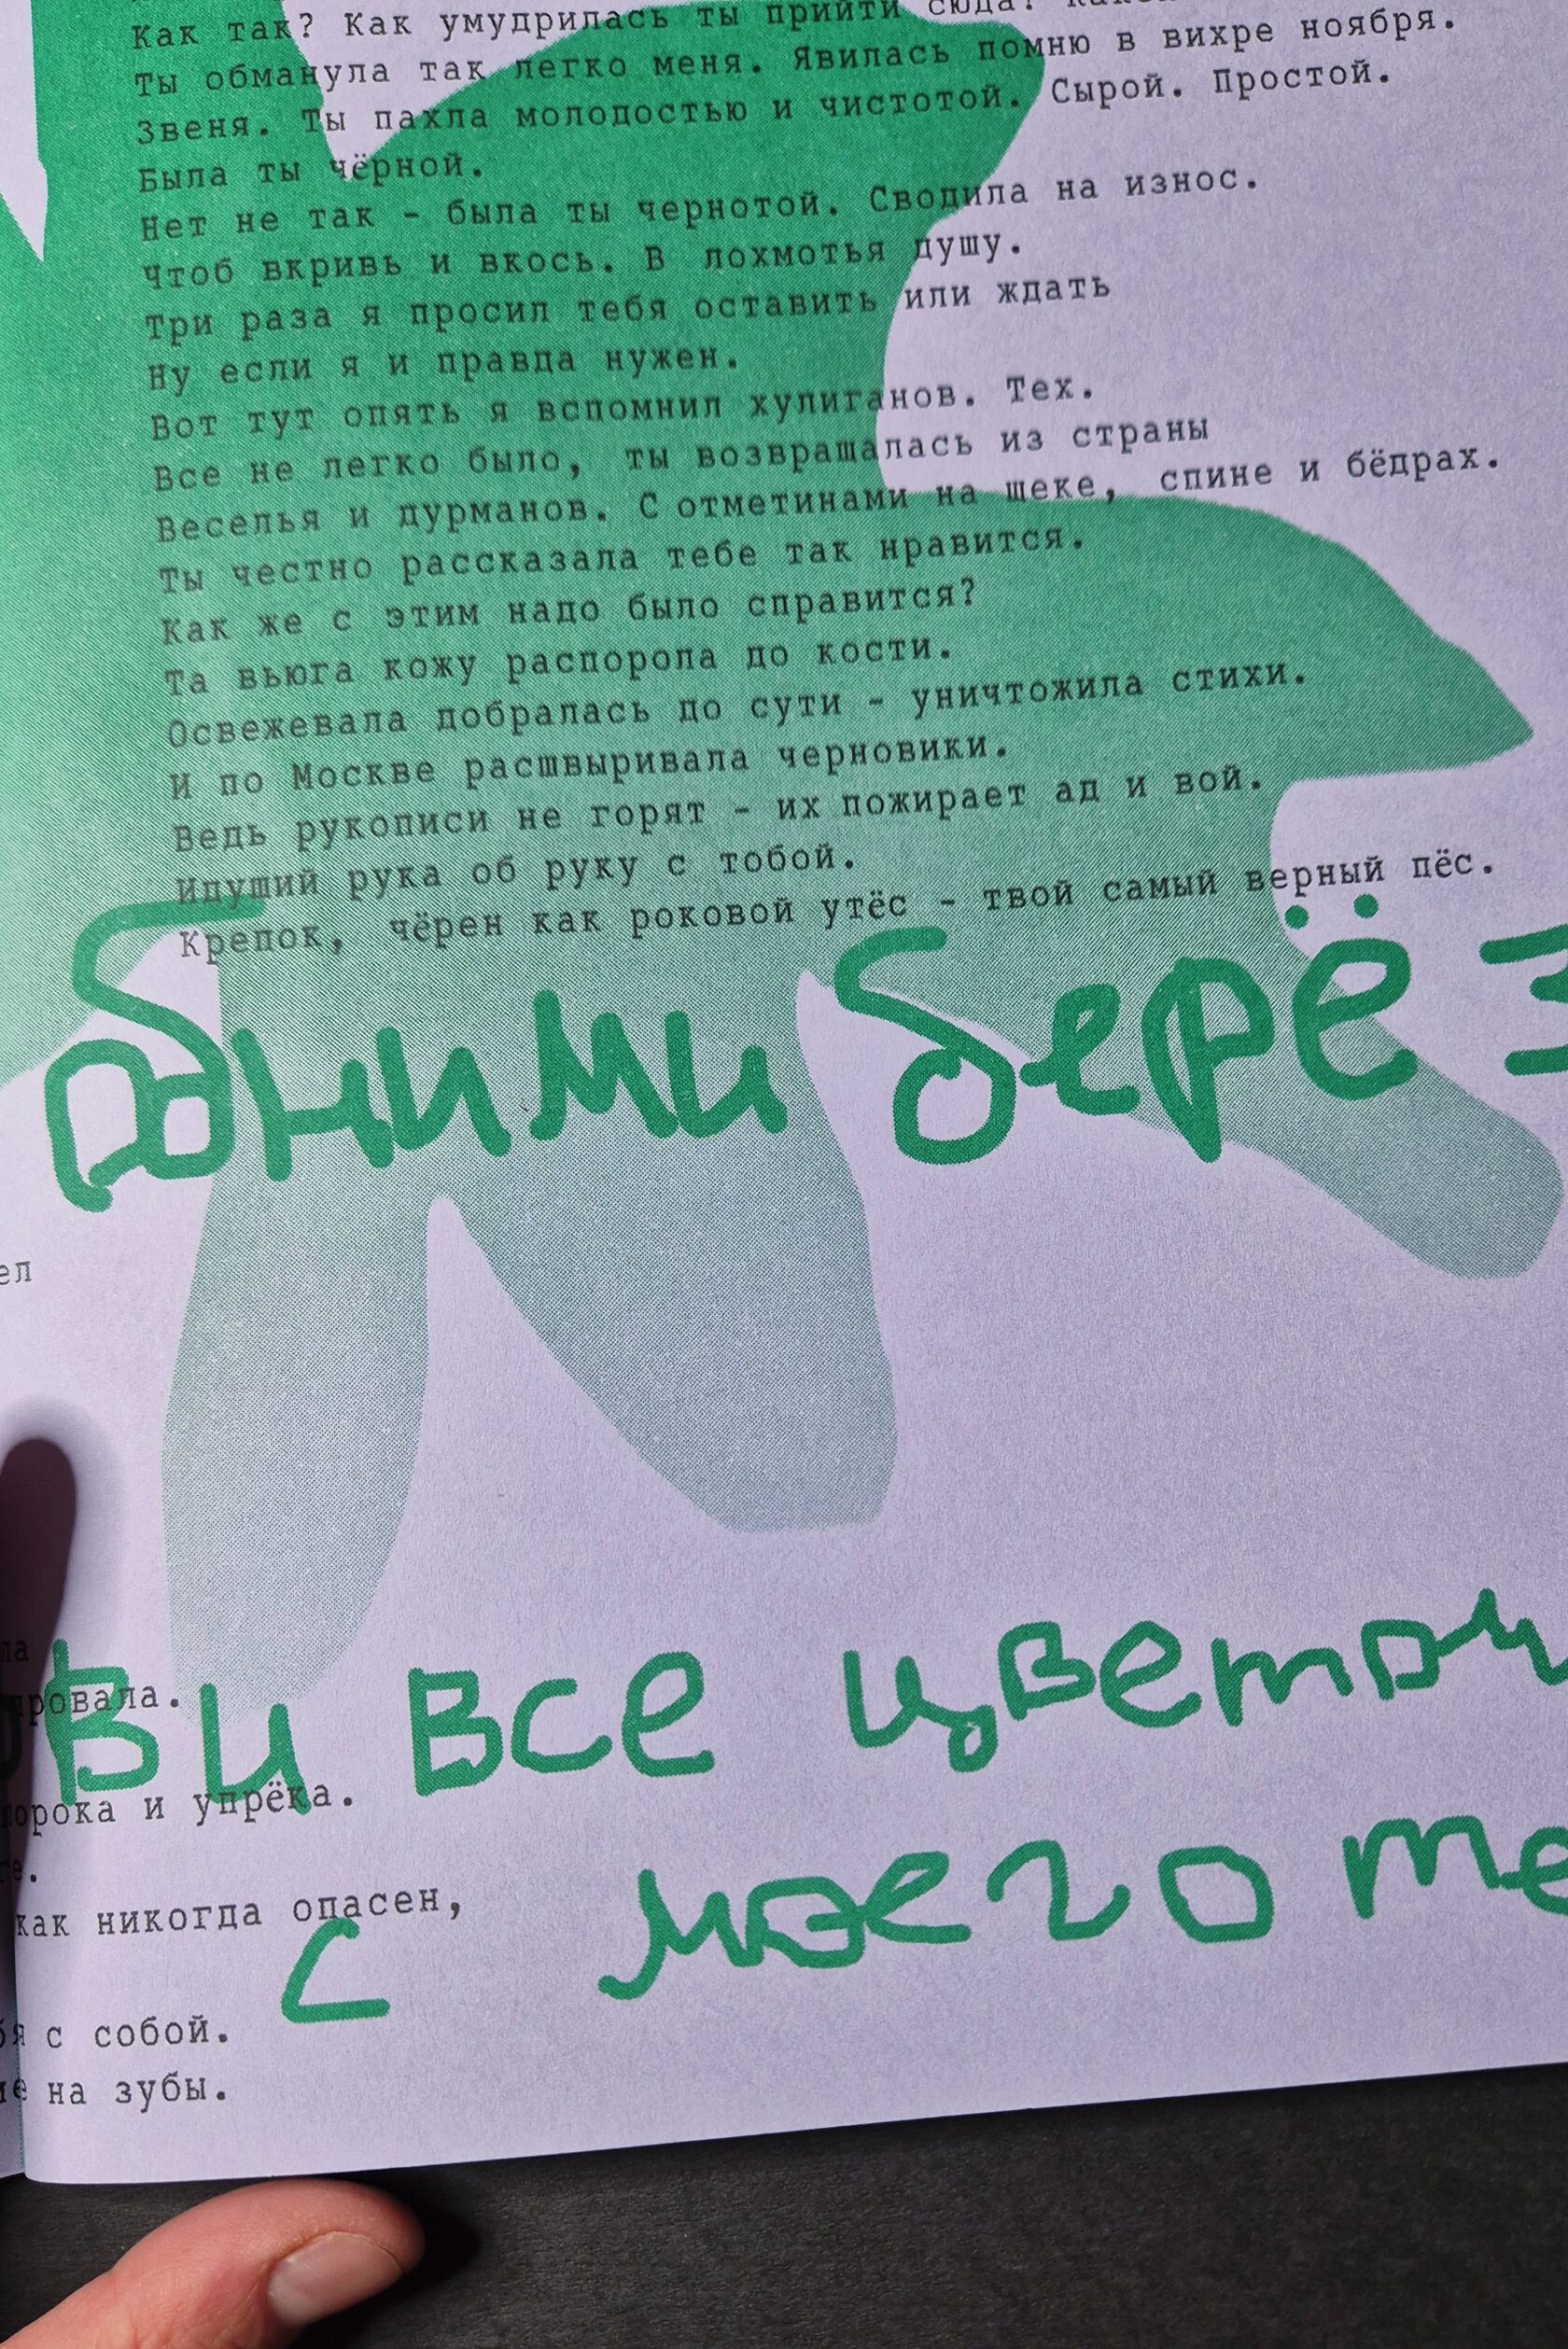 Как так? Как умудрилась ты прийти сюда?
Ты обманула так легко меня. Явилась помню в вихре ноября.
Звеня. Ты пахла молодостью и чистотой. Сырой. Простой.
Была ты чёрной.
Нет не так - была ты чернотой. Сводила на износ.
Чтоб вкривь и вкось. В лохмотья душу.
Три раза я просил тебя оставить или ждать
Ну если я и правда нужен.
Вот тут опять я вспомнил хулиганов. Тех.
Все не легко было, ты возвращалась из страны
Веселья и дурманов. С отметинами на щеке, спине и бёдрах.
Ты честно рассказала тебе так нравится.
Как же с этим надо было справится?
Та вьюга кожу распорола до кости.
Освежевала добралась до сути - уничтожила стихи.
И по Москве расшвыривала черновики.
Ведь рукописи не горят - их пожирает ад и вой.
Идущий рука об руку с тобой.
Крепок, чёрен как роковой утёс - твой самый верный пёс.
обними берёз
ел
ла
ровала.
ви все цветоч
орока и упрёка.
те.
как никогда опасен,
с моего те
бя с собой.
ие на зубы.